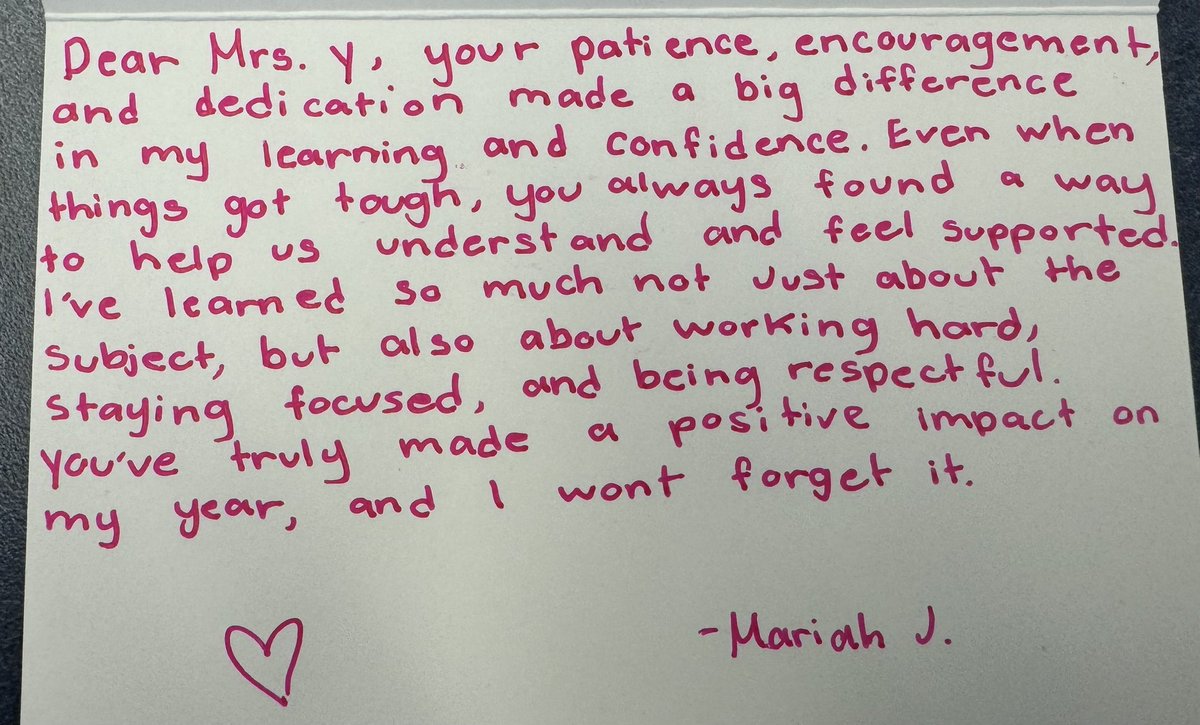 Dear Mrs. Y, your patience, encouragement,
and dedication made a big difference
in my learning and confidence. Even when
things got tough, you always found a way
to help us understand and feel supported.
I've learned so much not Just about the
subject, but also about working hard,
staying focused, and being respectful.
you've truly made a positive impact on
my year, and I wont forget it.
-Mariah J.